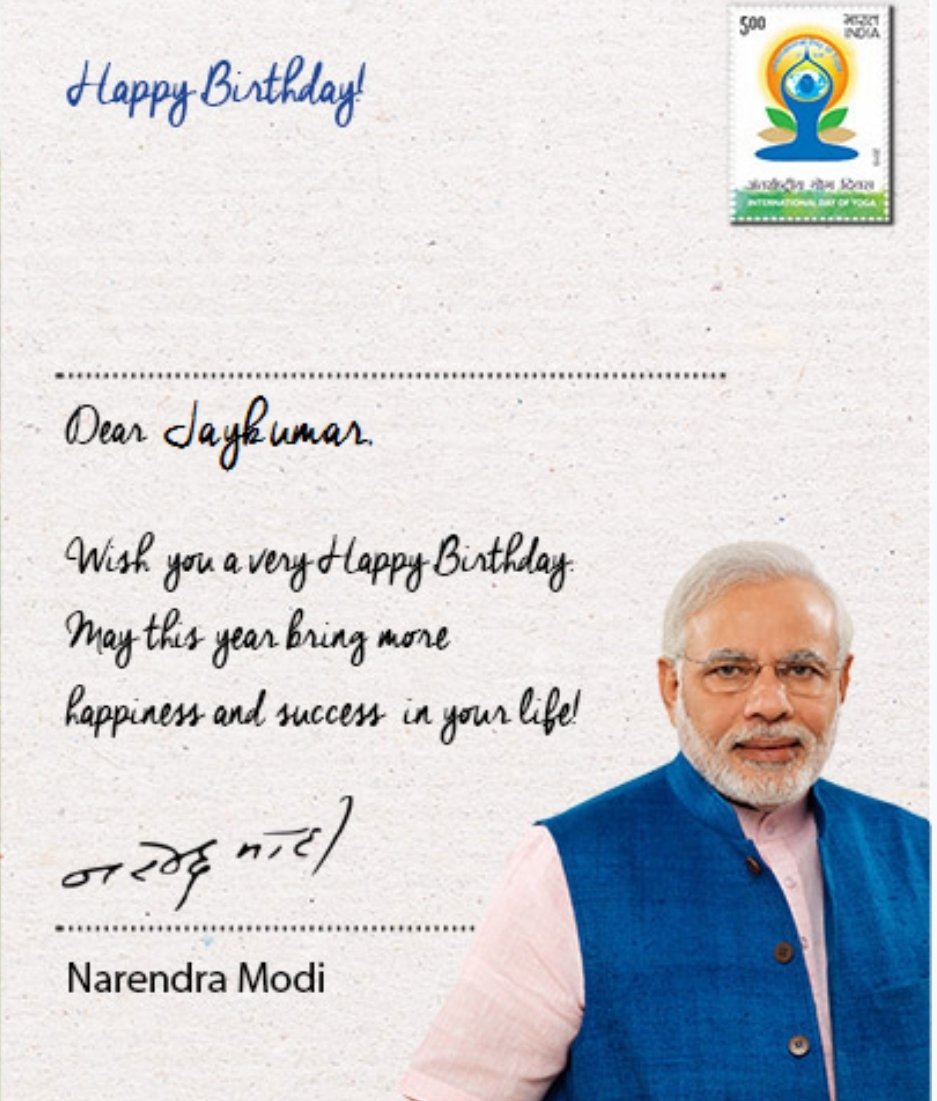 Happy Birthday!
5.00
भारत
INDIA
2015
अंतर्राष्ट्रीय योग दिवस
INTERNATIONAL DAY OF YOGA
Dear Jaykumar,
Wish you a very Happy Birthday.
May this year bring more
happiness and success in your life!
नरेन्द्र मोदी
Narendra Modi